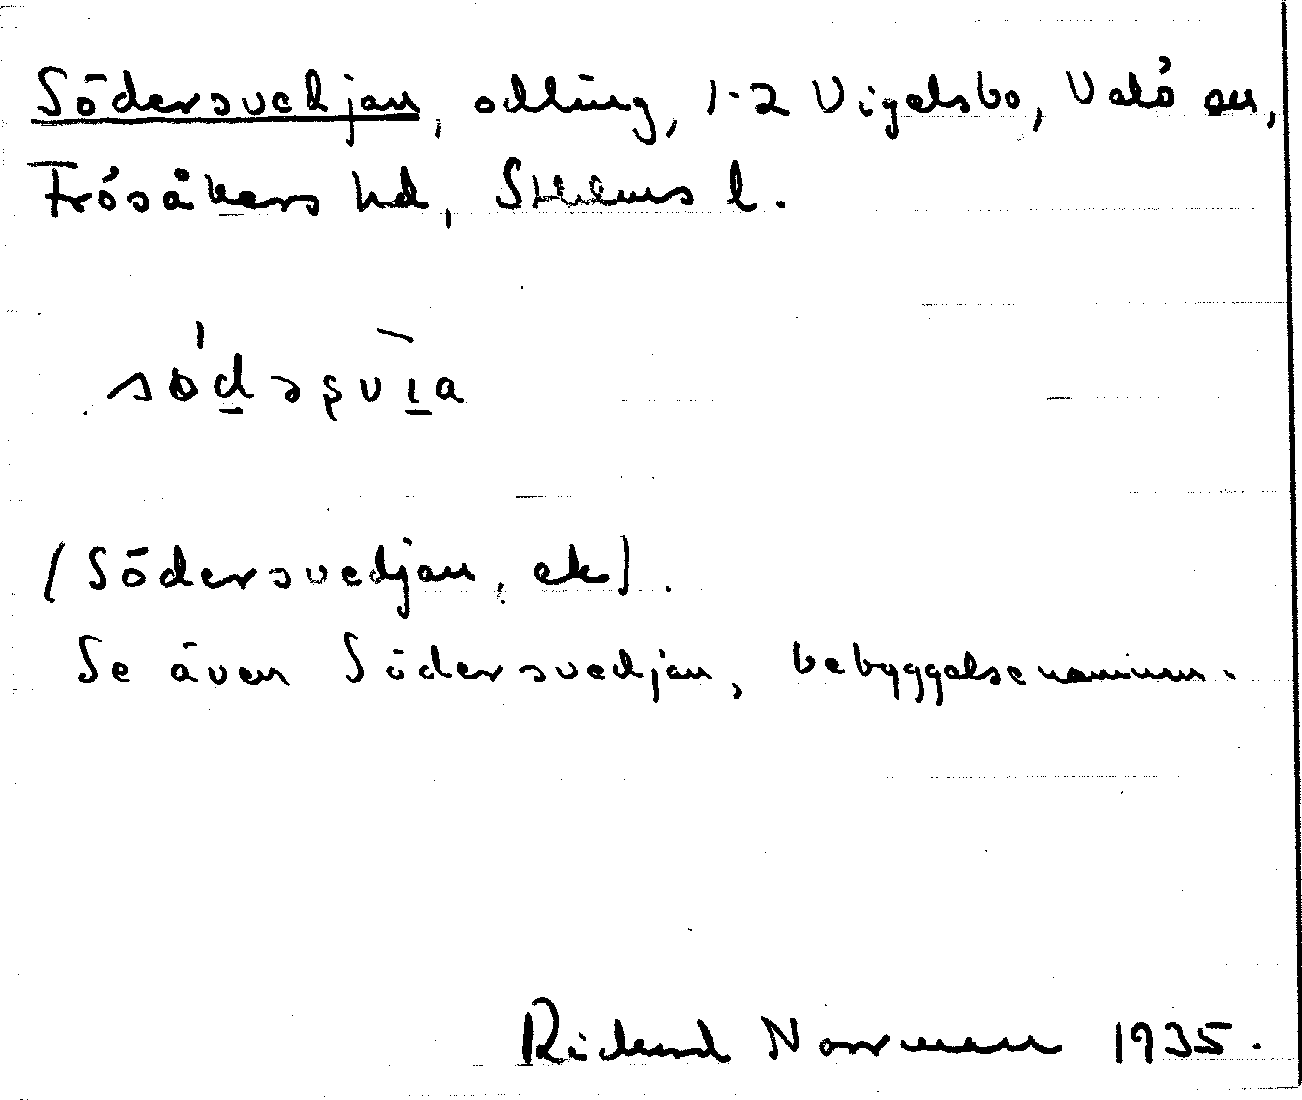 Södersvedjan, odling, 1-2 Vigelsbo, Valö sn,
Frösåkers hd, Sthlms l.
(Södersvedjan, ek).
Se även Södersvedjan, bebyggelsenamnen.
Rickard Norrman 1935.